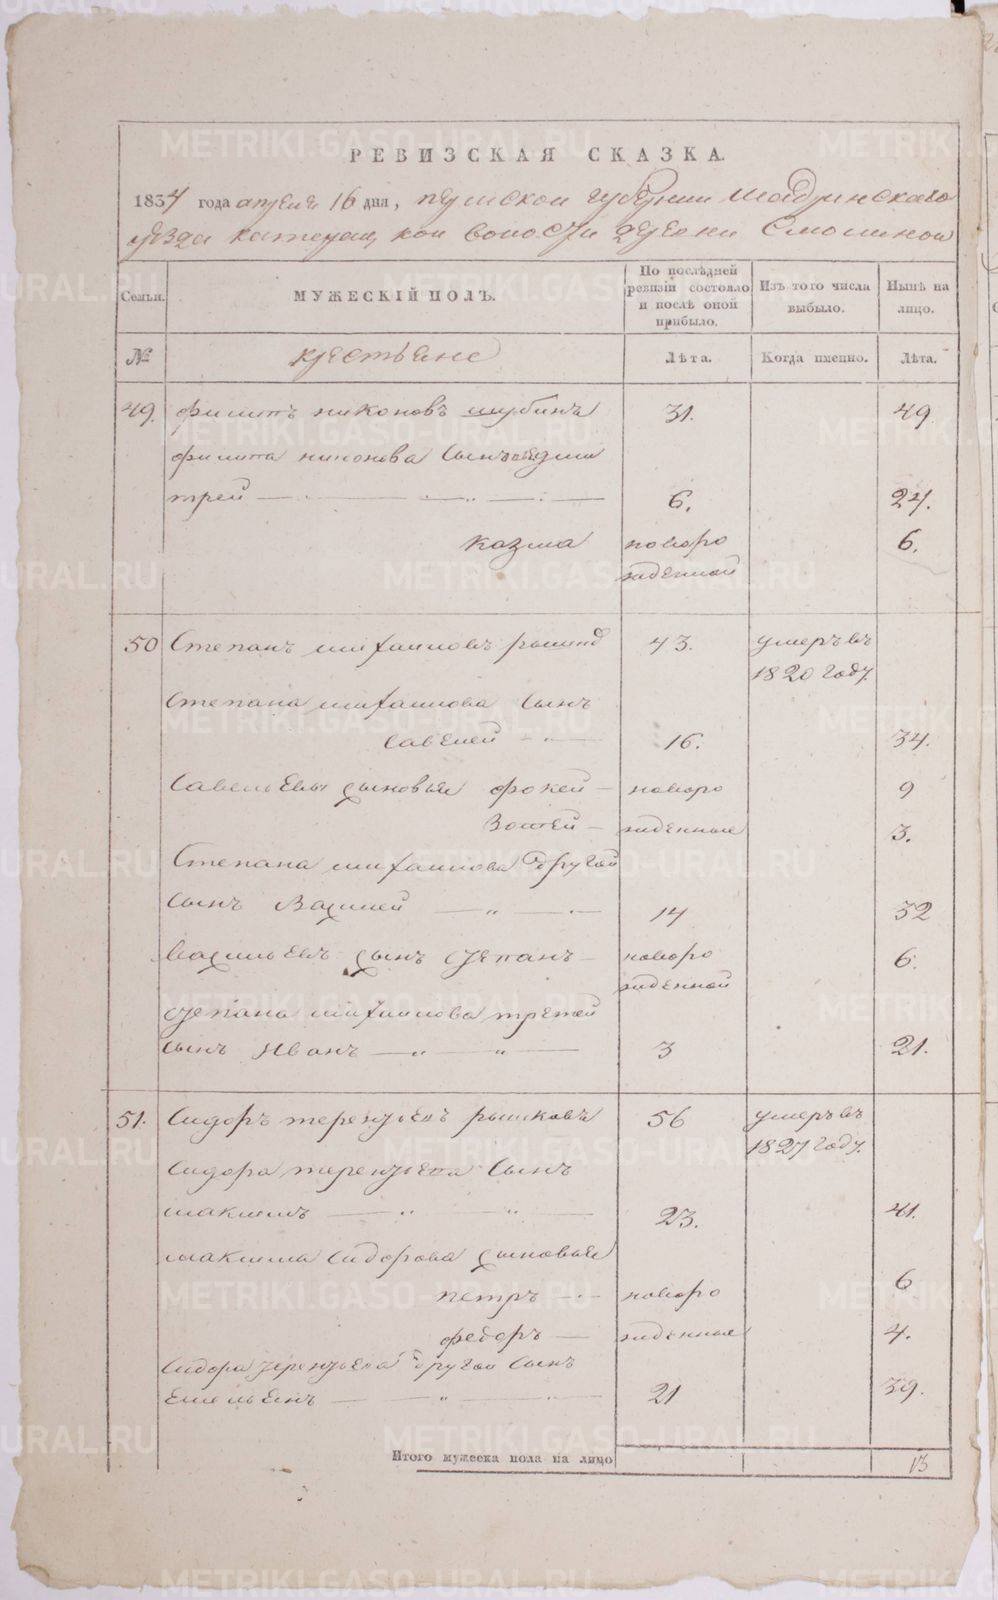 РЕВИЗСКАЯ СКАЗКА.
1834 года апреля 16 дня, пермской губернии Шадринскаго
уезда Катеращкой волости деревни Смолиной
Семьи. МУЖЕСКІЙ ПОЛЪ. По послѣдней ревизіи состояло и послѣ оной прибыло. Изъ того числа выбыло. Нынѣ на лицо.
№ крестьяне Лѣта. Когда именно. Лѣта.
49. филипъ никоновъ шубинъ 31. 49.
филипа никонова Сынъ дми
трей 6. 24.
козма новоро 6.
жденной
50 Степанъ михаиловъ 43. умеръ въ
1820 году.
Степана михаилова Сынъ
Савелей 16. 34.
Савельевы сыновья фокей новоро 9
Зотей жденные 3.
Степана михаилова другой
сынъ Василей 14 32
васильевъ сынъ степанъ новоро 6.
жденной
степана михаилова третей
сынъ Иванъ 3 21.
51. Сидоръ терентьевъ рышковъ 56 умеръ въ
1827 году.
Сидора терентьева Сынъ
максимъ 23. 41.
максима Сидорова сыновья
петръ новоро 6
федоръ жденные 4.
Сидора терентьева другой Сынъ
Емельянъ 21 39.
Итого мужеска пола на лицо 13
METRIKI.GASO-URAL.RU